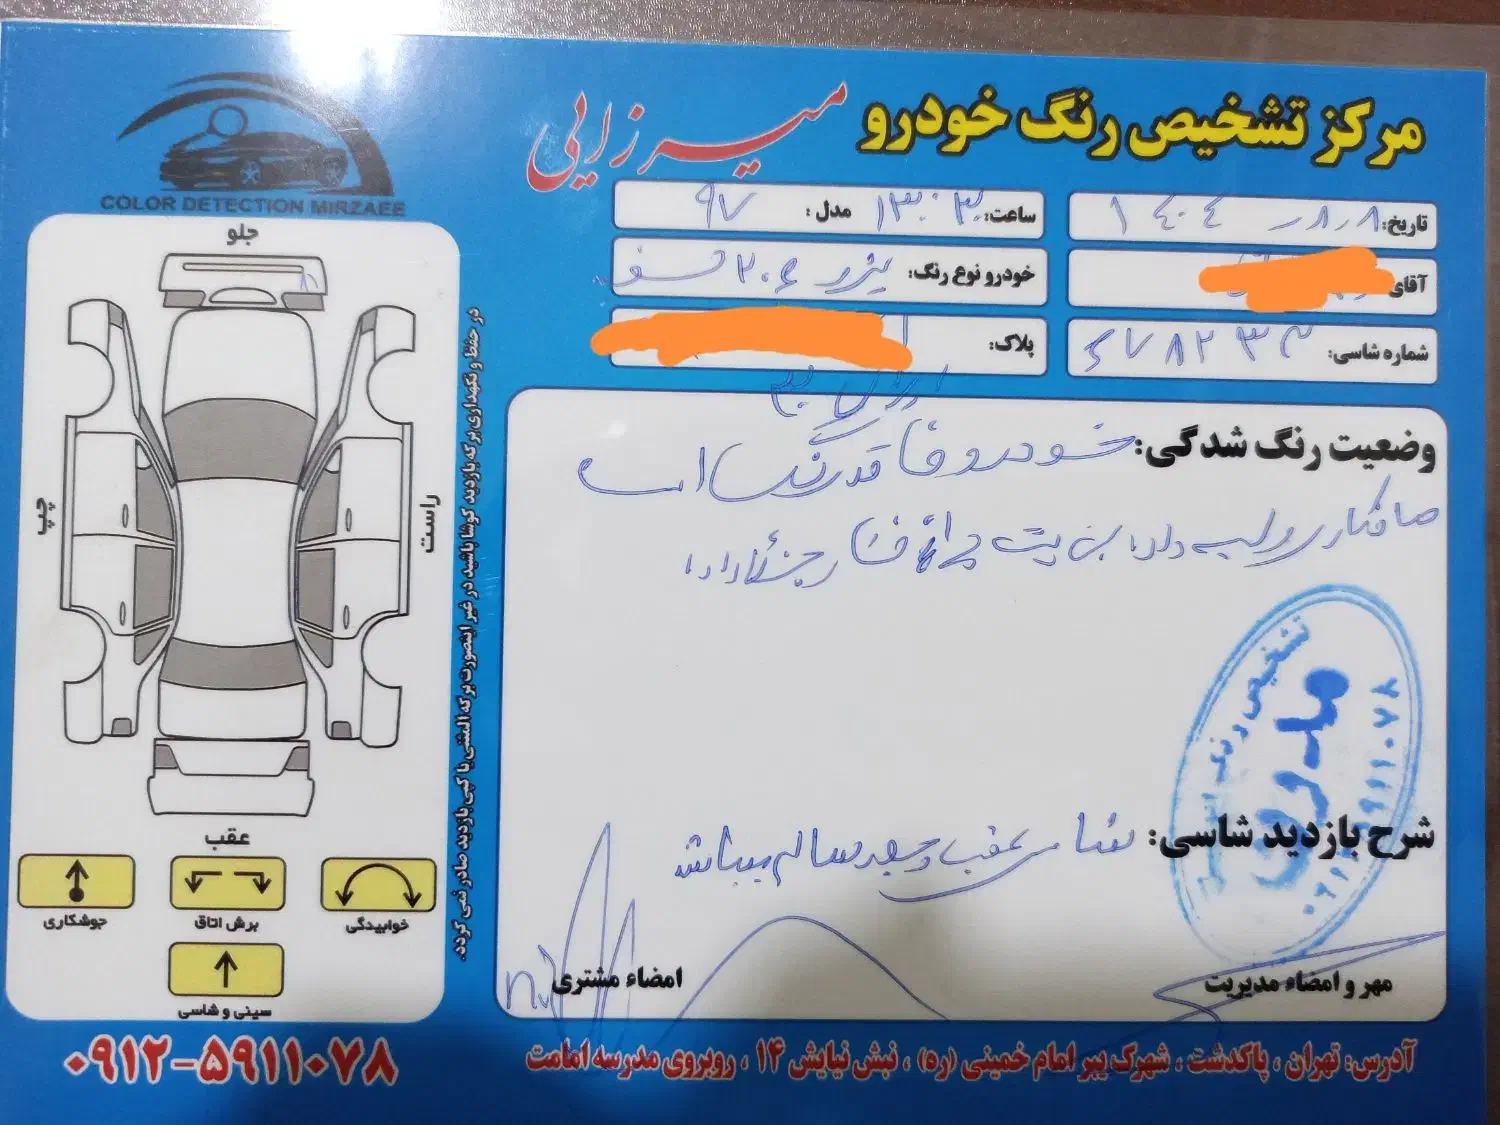 مرکز تشخیص رنگ خودرو
میرزایی
COLOR DETECTION MIRZAEE
تاریخ: ۱۴۰۴٫۸٫۸
ساعت: ۱۳:۳۰
مدل: ۹۷
آقای
خودرو نوع رنگ: پژو ۲۰۶ سفید
شماره شاسی: ۶۷۸۲۳۳
پلاک:
وضعیت رنگ شدگی: خودرو فاقد رنگ است
صافکاری
شرح بازدید شاسی: شاسی عقب و جلو سالم میباشد
مهر و امضاء مدیریت
امضاء مشتری
تشخیص رنگ
جلو
چپ
راست
عقب
خوابیدگی
برش اتاق
جوشکاری
سینی و شاسی
در حفظ و نگهداری برگه بازدید کوشا باشید در غیر اینصورت برگه المثنی یا کپی بازدید صادر نمی گردد.
۰۹۱۲-۵۹۱۱۰۷۸
آدرس: تهران ، پاکدشت ، شهرک پیر امام خمینی (ره) ، نبش نیایش ۱۴ ، روبروی مدرسه امامت